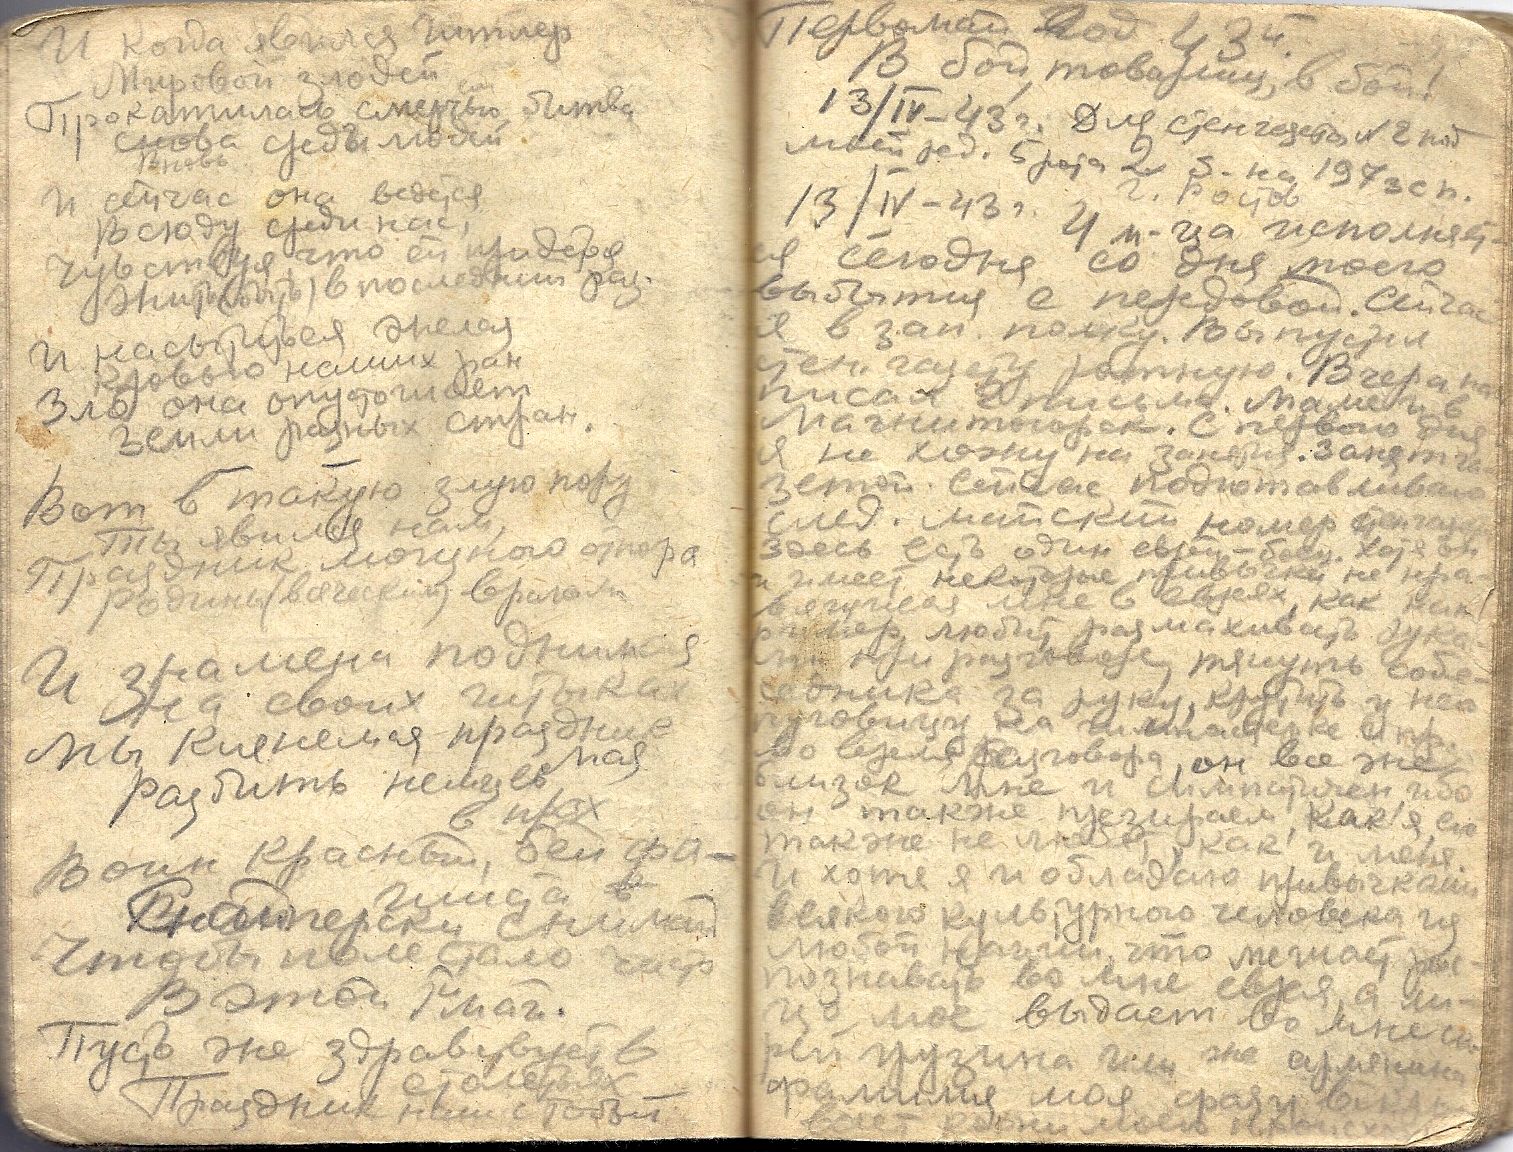 И когда явился Гитлер
Мировой злодей
Прокатилась смерчью битва
снова средь людей
Вновь
И сейчас она ведется
Всюду среди нас,
Чувствуя что ей придется
Жить (быть) в последний раз.
И насытиться желая
кровью наших ран
Зло она опустошает
Земли разных стран.
Вот в такую злую пору
Ты явился нам,
Праздник мощного отпора
Родины (всяческим) врагам
И знамена поднимая
На своих штыках
Мы клянемся праздник
мая
разбить немцев
в прах
Воин красный, бей фа-
шиста в
Снайперски снимай
Чтобы поле стало чисто
В этот 1й май.
Пусть же здравствует в
столетьях
Праздник наш с тобой
Первомай год 43й.
В бой, товарищ, в бой!
13/IV-43 г. Для стенгазеты №2 под
моей ред. 5 рота 2 б-на 197 зсп.
г. Ростов
13/IV-43 г. 4 м-ца исполняет-
ся сегодня со дня моего
выбытия с передовой. Сейчас
я в зап. полку. Выпустил
стен. газету ротную. Вчера на
писал 2 письма. Маме и в
Магнитогорск. С первого дня
я не хожу на занятия. Занят га-
зетой. Сейчас подготавливаю
след. майский номер стенгазеты
Здесь есть один еврей-боец. Хотя он
и имеет некоторые привычки не нра-
вящиеся мне в евреях, как нап
ример, любит размахивать рука-
ми при разговоре, тянуть собе-
седника за руку, крутить у него
пуговицу на гимнастерке и пр.
во время разговора, он все же
близок мне и симпатичен ибо
он также презираем, как я, его
также не любят, как и меня.
И хотя я и обладаю привычками
всякого культурного человека из
любой нации, что мешает рас-
познавать во мне еврея, а ли-
цо мое выдает во мне ско
рей грузина или же армянина
фамилия моя сразу
вает корни моего происхож